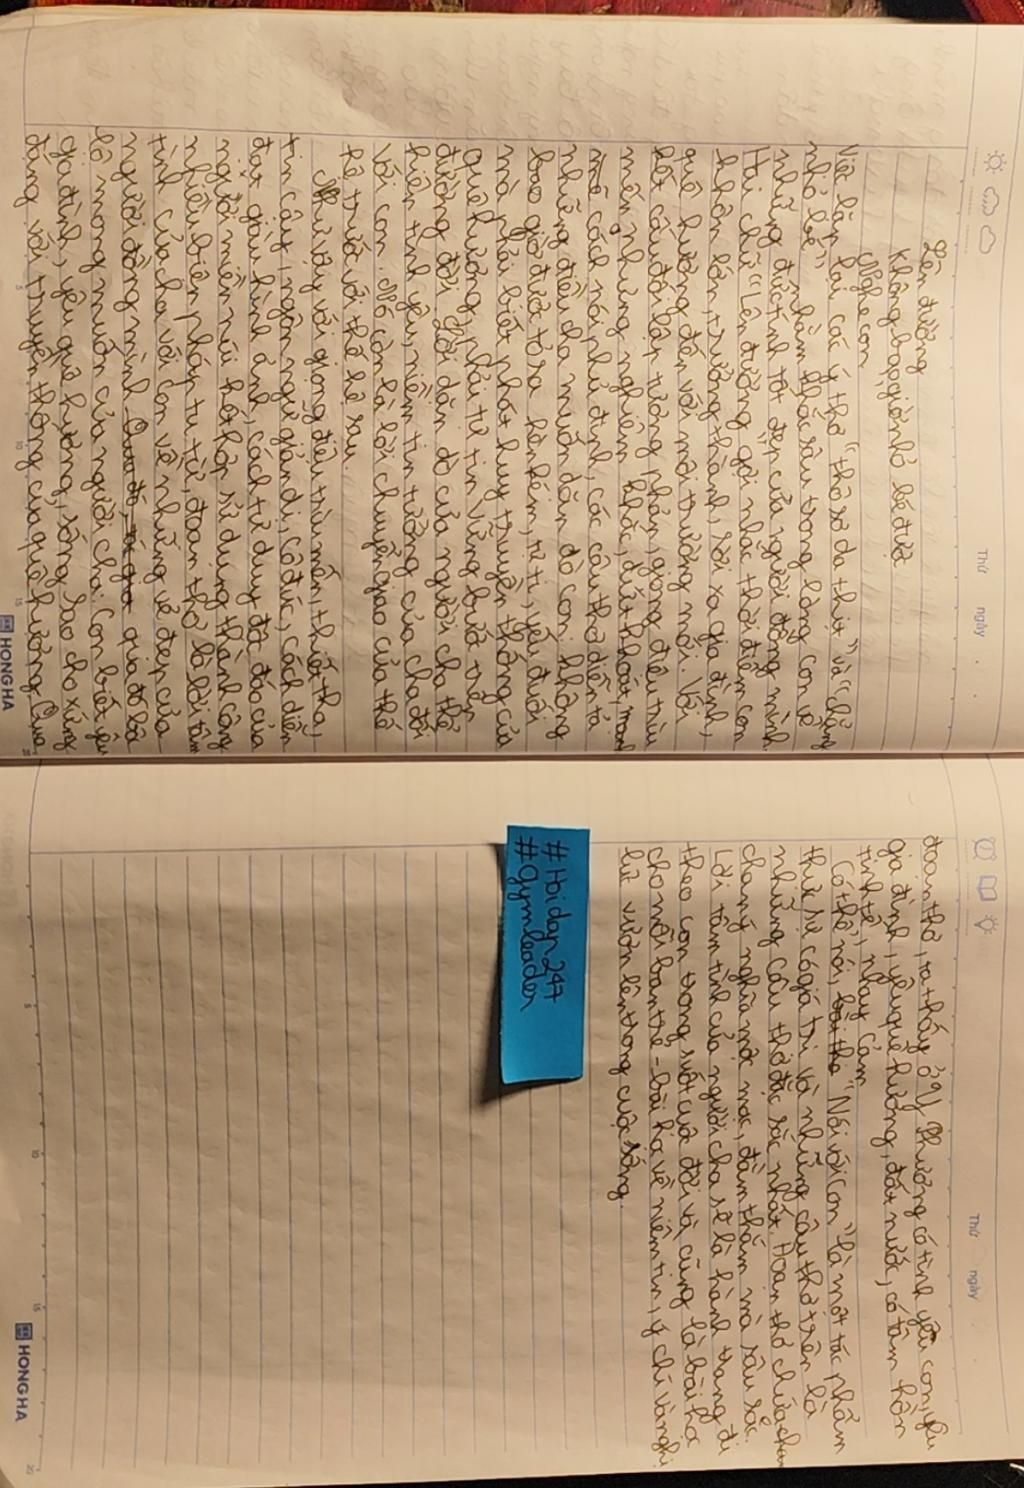 Thứ ngày
Lên đường
Không bao giờ nhỏ bé được
Nghe con
Việc lặp lại các ý thơ "thô sơ da thịt" và "chẳng
nhỏ bé" nhằm khắc sâu trong lòng con về
những đức tính tốt đẹp của người đồng mình.
Hai chữ "Lên đường" gợi nhắc thời điểm con
khôn lớn, trưởng thành, rời xa gia đình,
quê hương đến với môi trường mới. Với
kết cấu đối lập tương phản, giọng điệu trìu
mến nhưng nghiêm khắc, dứt khoát, mạnh
mẽ cách nói phủ định, các câu thơ diễn tả
những điều cha muốn dặn dò con: không
bao giờ được tỏ ra hèn kém, tự ti, yếu đuối
mà phải biết phát huy truyền thống của
quê hương, phải tự tin vững bước trên
đường đời. Lời dặn dò của người cha thể
hiện tình yêu, niềm tin tưởng của cha đối
với con. Nó còn là lời chuyển giao của thế
hệ trước với thế hệ sau.
Như vậy với giọng điệu trìu mến, thiết tha,
tin cậy, ngôn ngữ giản dị, cô đúc, cách diễn
đạt giàu hình ảnh, cách tư duy độc đáo của
người miền núi kết hợp sử dụng thành công
nhiều biện pháp tu từ, đoạn thơ là lời tâm
tình của cha với con về những vẻ đẹp của
người đồng mình qua đó bày
lộ mong muốn của người cha: Con biết yêu
gia đình, yêu quê hương, sống sao cho xứng
đáng với truyền thống của quê hương. Qua
HONG HA
Thứ ngày
đoạn thơ, ta thấy ở Y Phương có tình yêu con, yêu
gia đình, yêu quê hương, đất nước, có tâm hồn
tinh tế, nhạy cảm.
Có thể nói, "Nói với con" là một tác phẩm
thực sự có giá trị và những câu thơ trên là
những câu thơ đặc sắc nhất. Đoạn thơ chứa chan
chan ý nghĩa mộc mạc, đằm thắm mà sâu sắc.
Lời tâm tình của người cha sẽ là hành trang đi
theo con trong suốt cuộc đời và cũng là bài học
cho mỗi bạn trẻ - bài học về niềm tin, ý chí và nghị
lực vươn lên trong cuộc sống.
#Hoidap247
#Gymleader
HONG HA